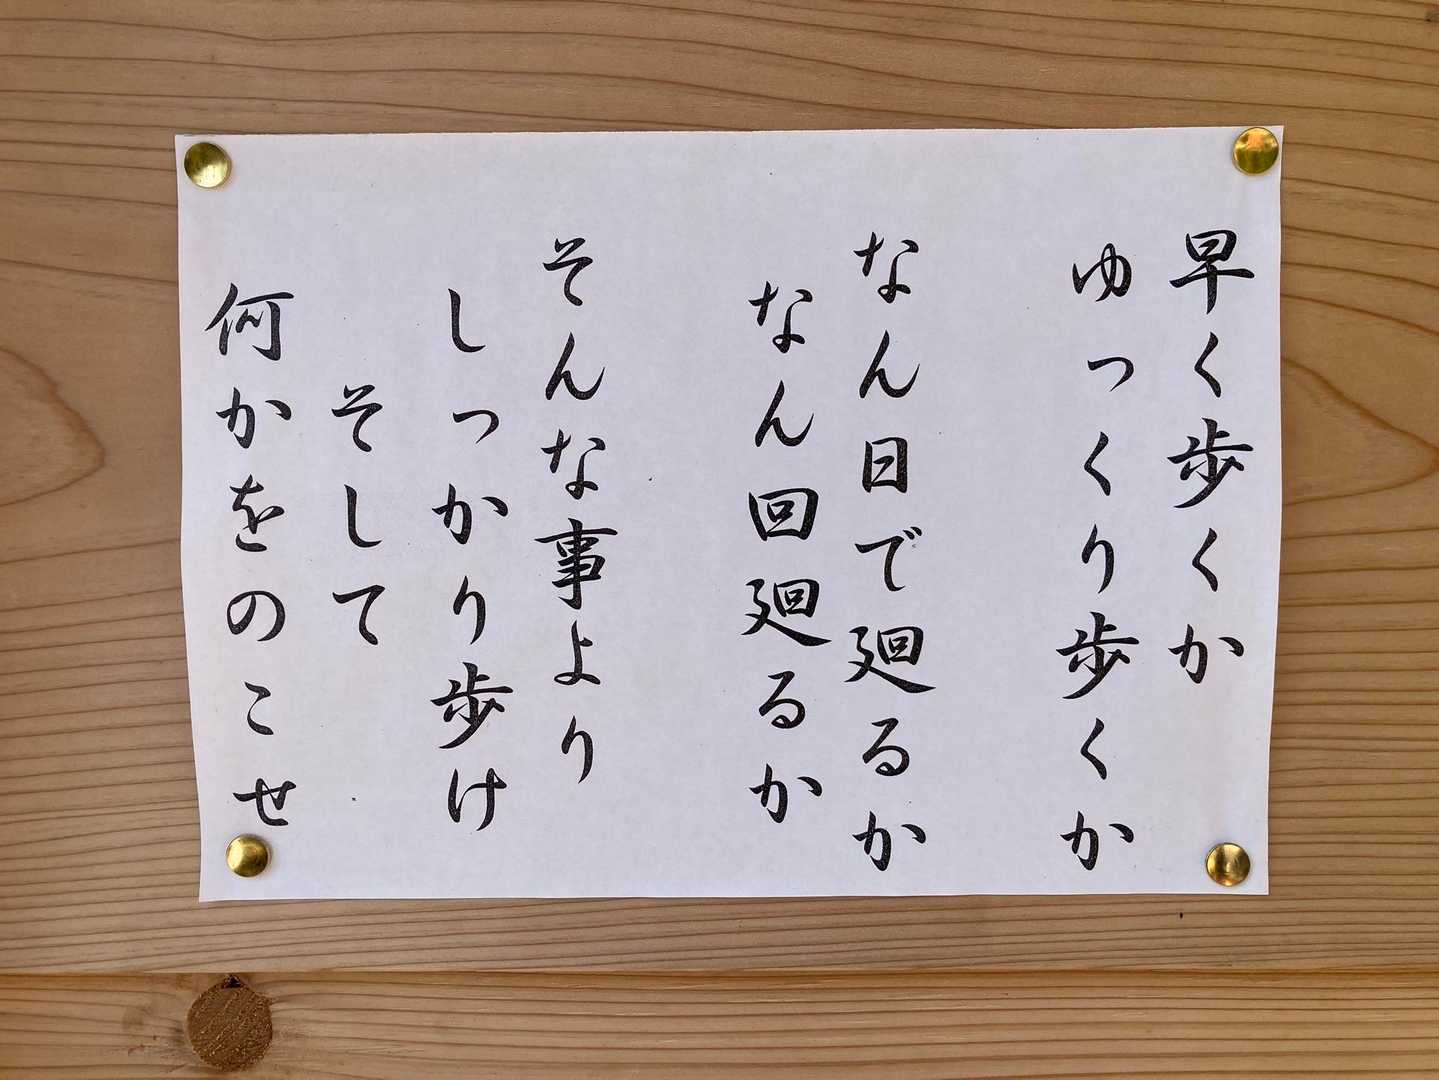 早く歩くか
ゆっくり歩くか
なん日で廻るか
なん回廻るか
そんな事より
しっかり歩け
そして
何かをのこせ